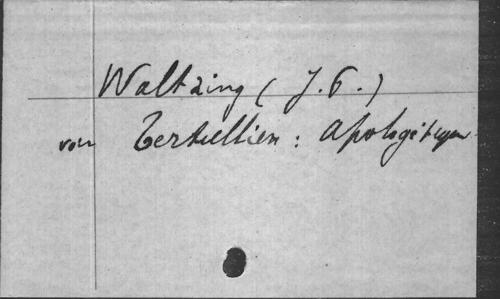 Waltzing (J. P.)
voir Tertullien : Apologétique